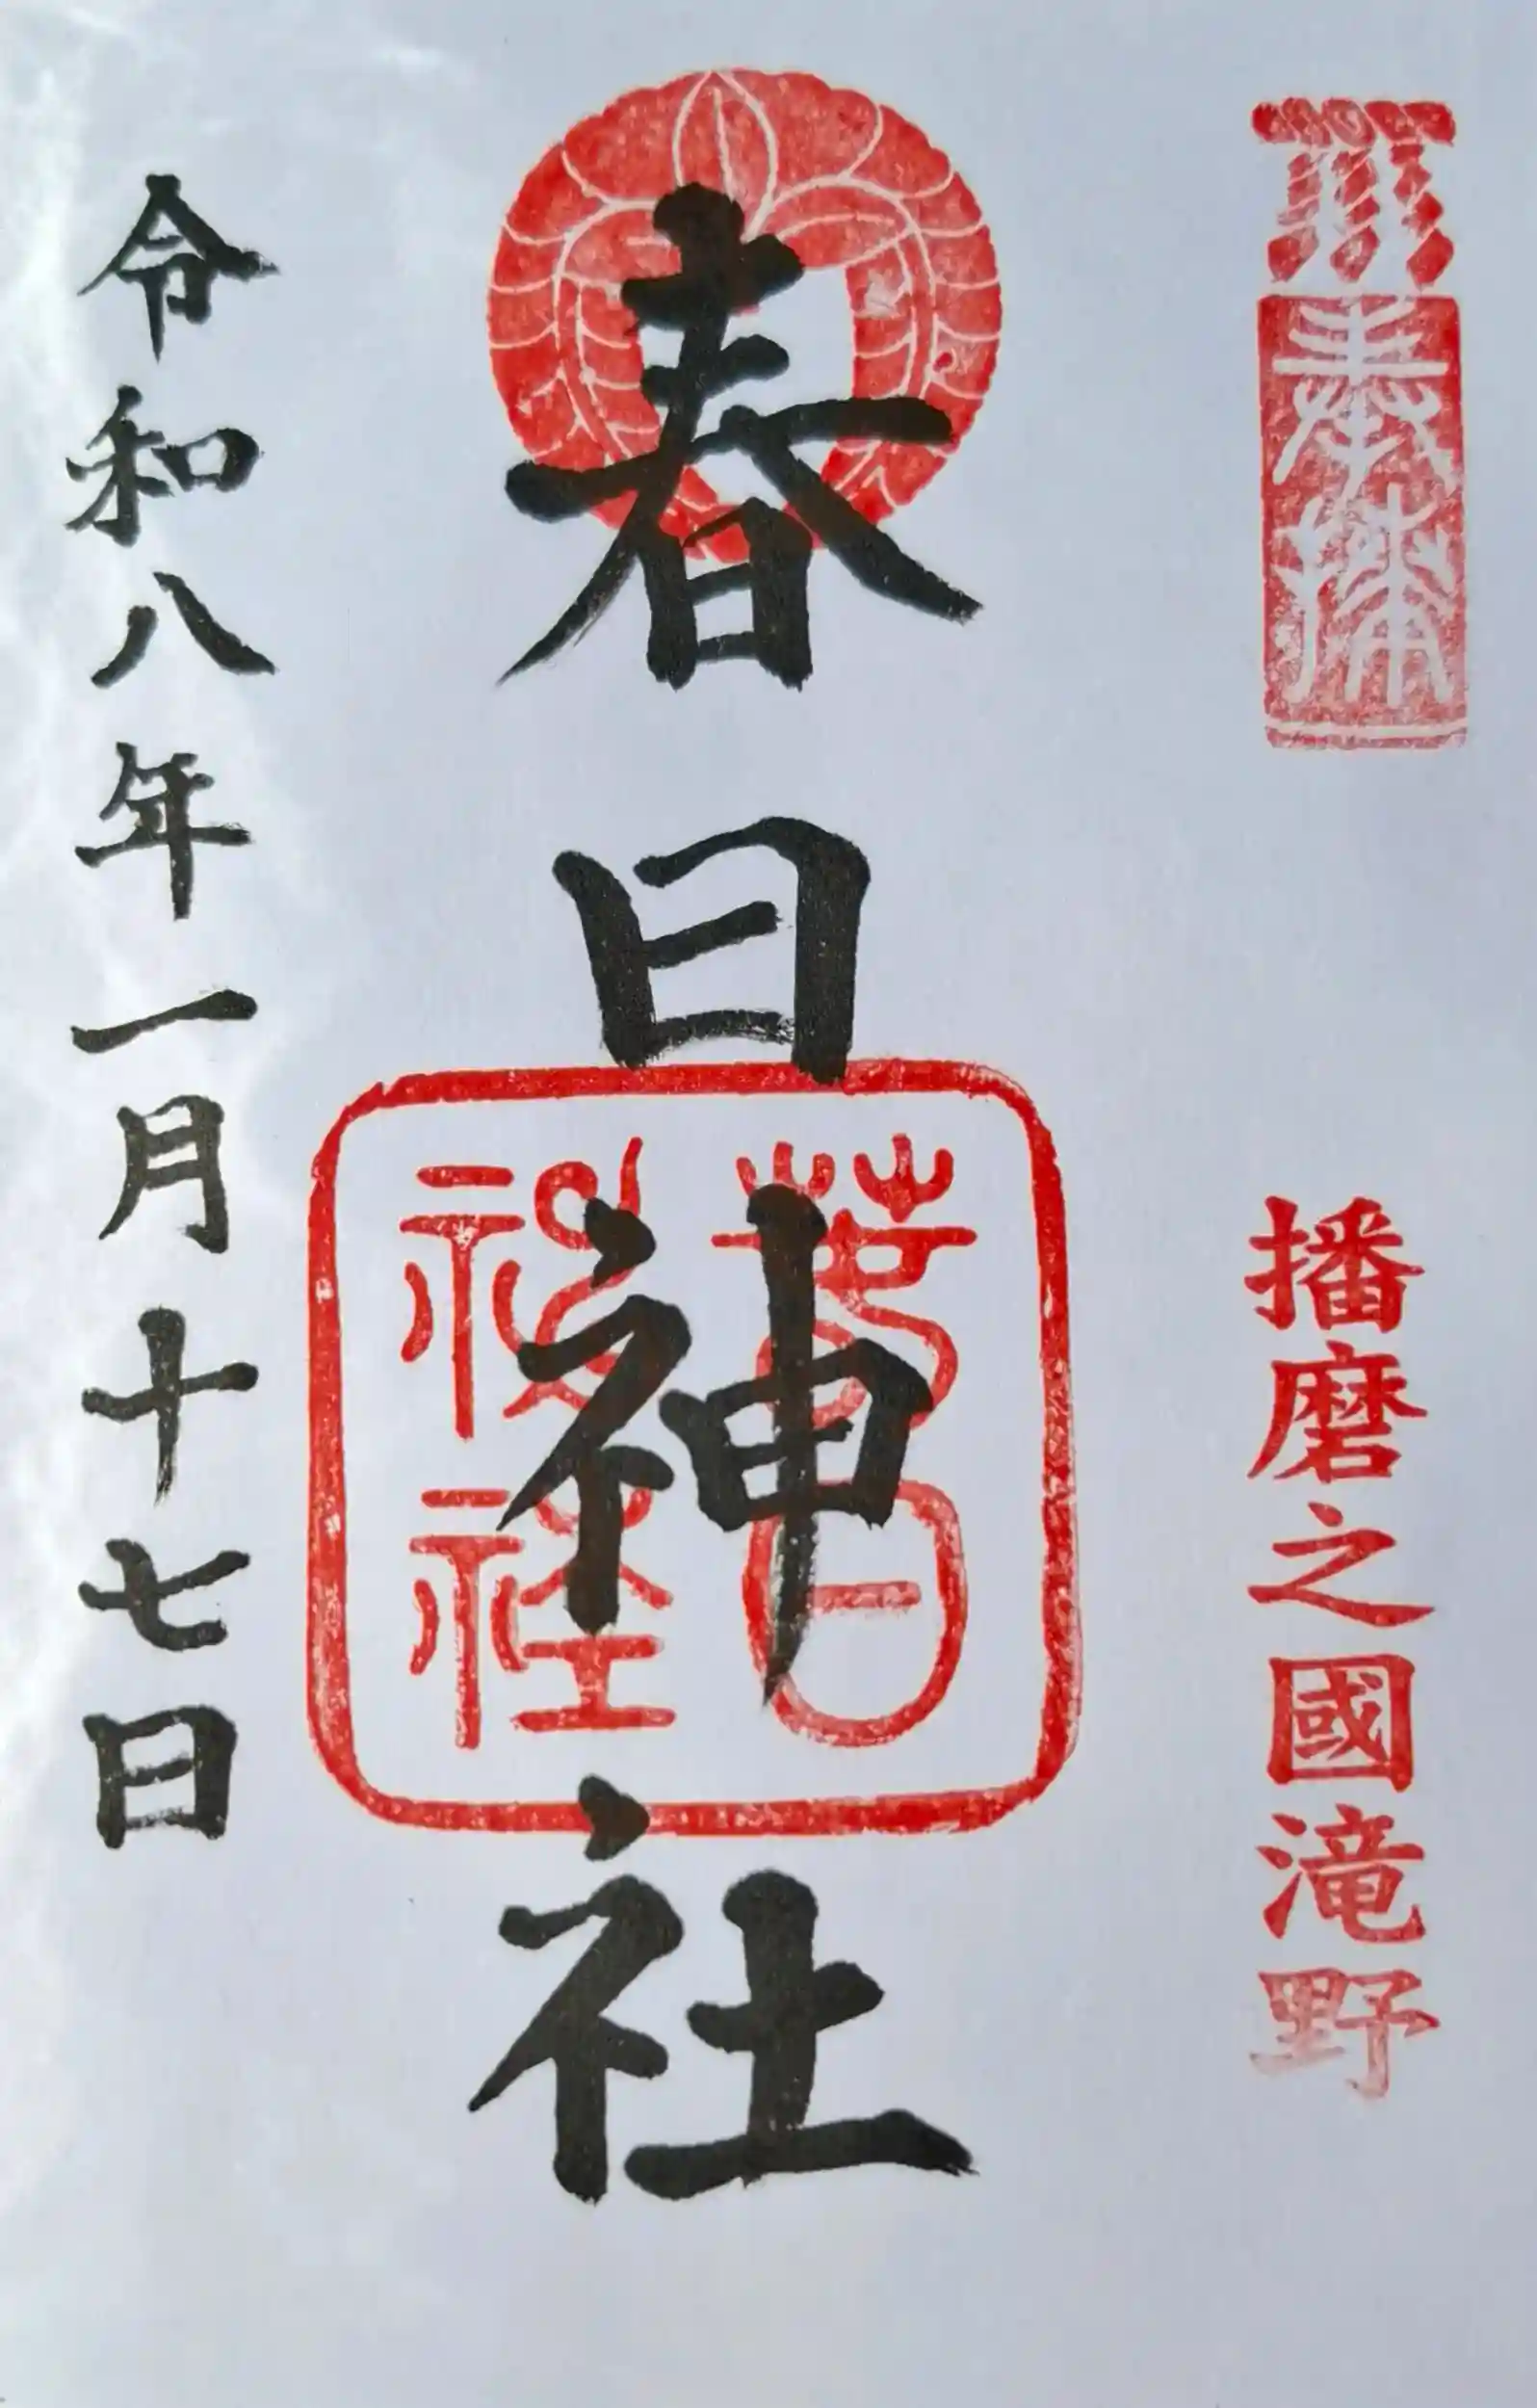 奉拝
播磨之國滝野
春日神社
春日神社
令和八年一月十七日